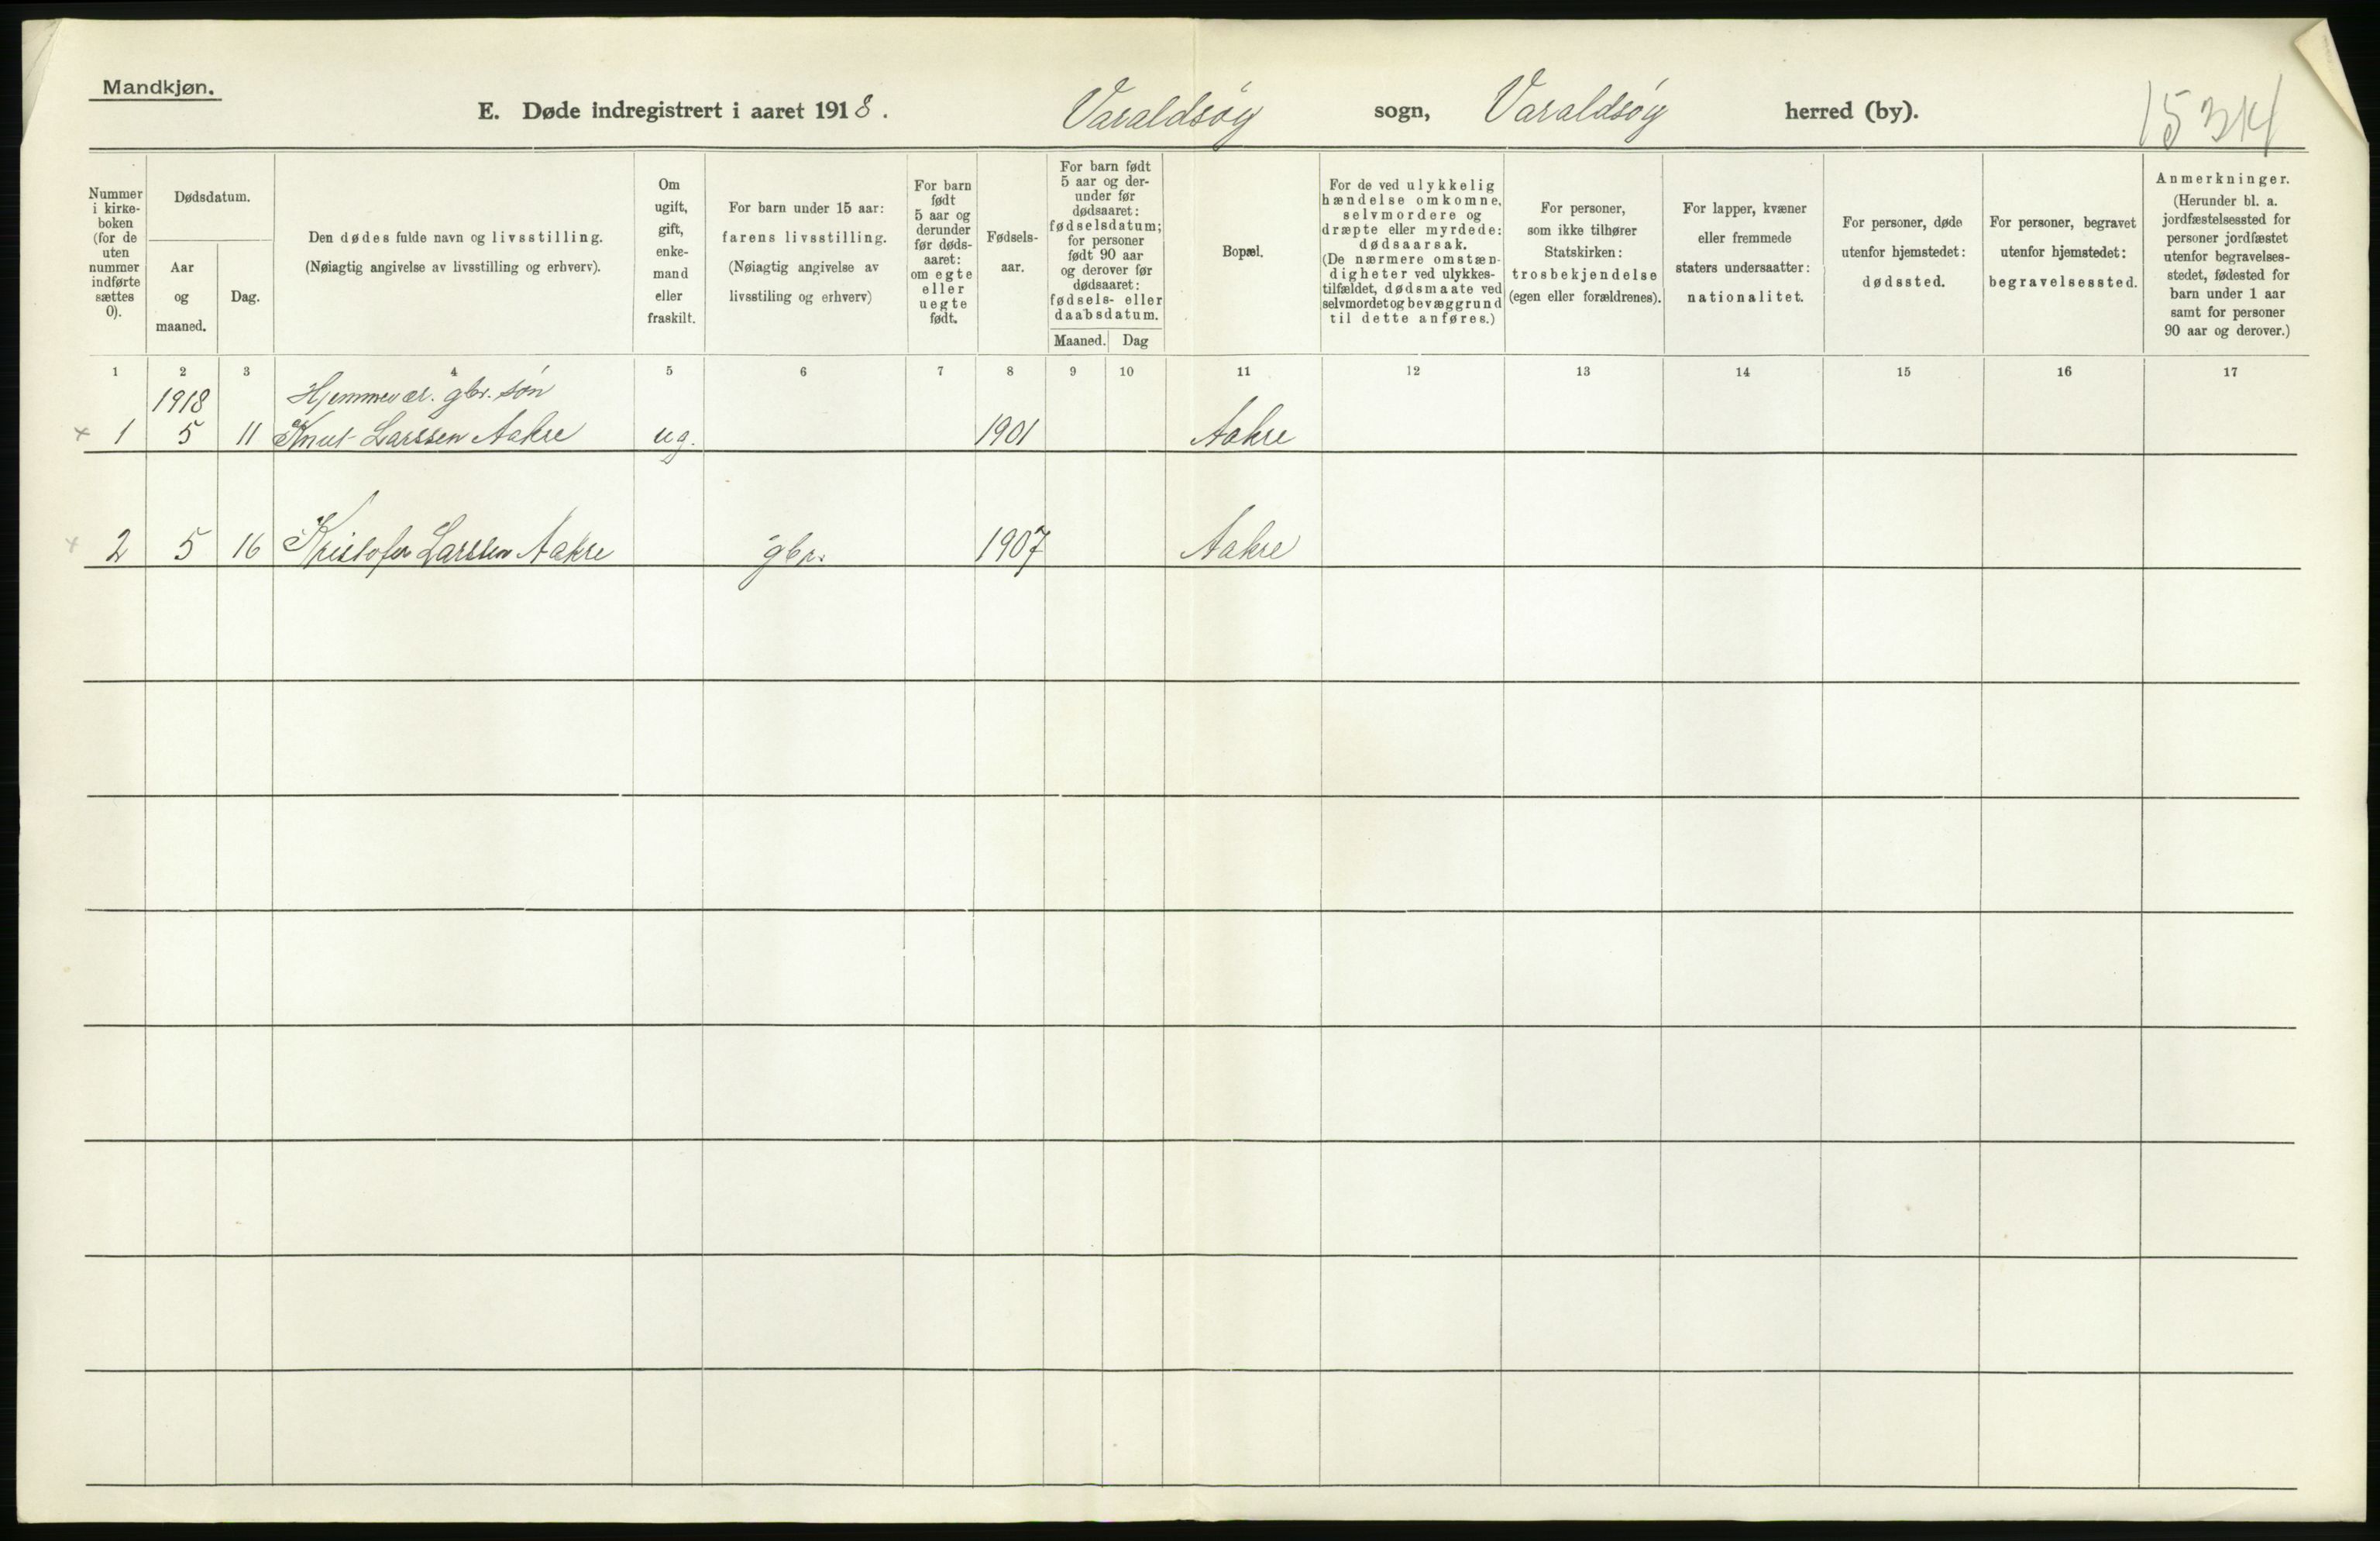 Mandkjøn.
E. Døde indregistrert i aaret 1918. Varaldsøy sogn, Varaldsøy herred (by).
Nummer i kirke- boken (for de uten nummer indførte sættes 0).
Dødsdatum.
Aar og maaned.
Dag.
Den dødes fulde navn og livsstilling.
(Nøiagtig angivelse av livsstilling og erhverv).
Om ugift, gift, enke- mand eller fraskilt.
For barn under 15 aar:
farens livsstilling.
(Nøiagtig angivelse av
livsstiling og erhverv)
For barn født 5 aar og derunder før døds- aaret: om egte eller uegte født.
Fødsels- aar.
For barn født 5 aar og der- under før dødsaaret: fødselsdatum; for personer født 90 aar og derover før dødsaaret: fødsels- eller daabsdatum.
Maaned. Dag
Bopæl.
For de ved ulykkelig hændelse omkomne, selvmordere og dræpte eller myrdede: dødsaarsak. (De nærmere omstæn- digheter ved ulykkes- tilfældet, dødsmaate ved selvmordet og bevæggrund til dette anføres.)
For personer, som ikke tilhører Statskirken: trosbekjendelse (egen eller forældrenes).
For lapper, kvæner eller fremmede staters undersaatter: nationalitet.
For personer, døde utenfor hjemstedet: dødssted.
For personer, begravet utenfor hjemstedet: begravelsessted.
Anmerkninger. (Herunder bl. a. jordfæstelsessted for personer jordfæstet utenfor begravelses- stedet, fødested for barn under 1 aar samt for personer 90 aar og derover.)
1 2 3 4 5 6 7 8 9 10 11 12 13 14 15 16 17
1918 gbr. søn
× 1 5 11 Knut Larssen Aakre ug. 1901 Aakre
× 2 5 16 Kristofer Larssen Aakre gbr. 1907 Aakre